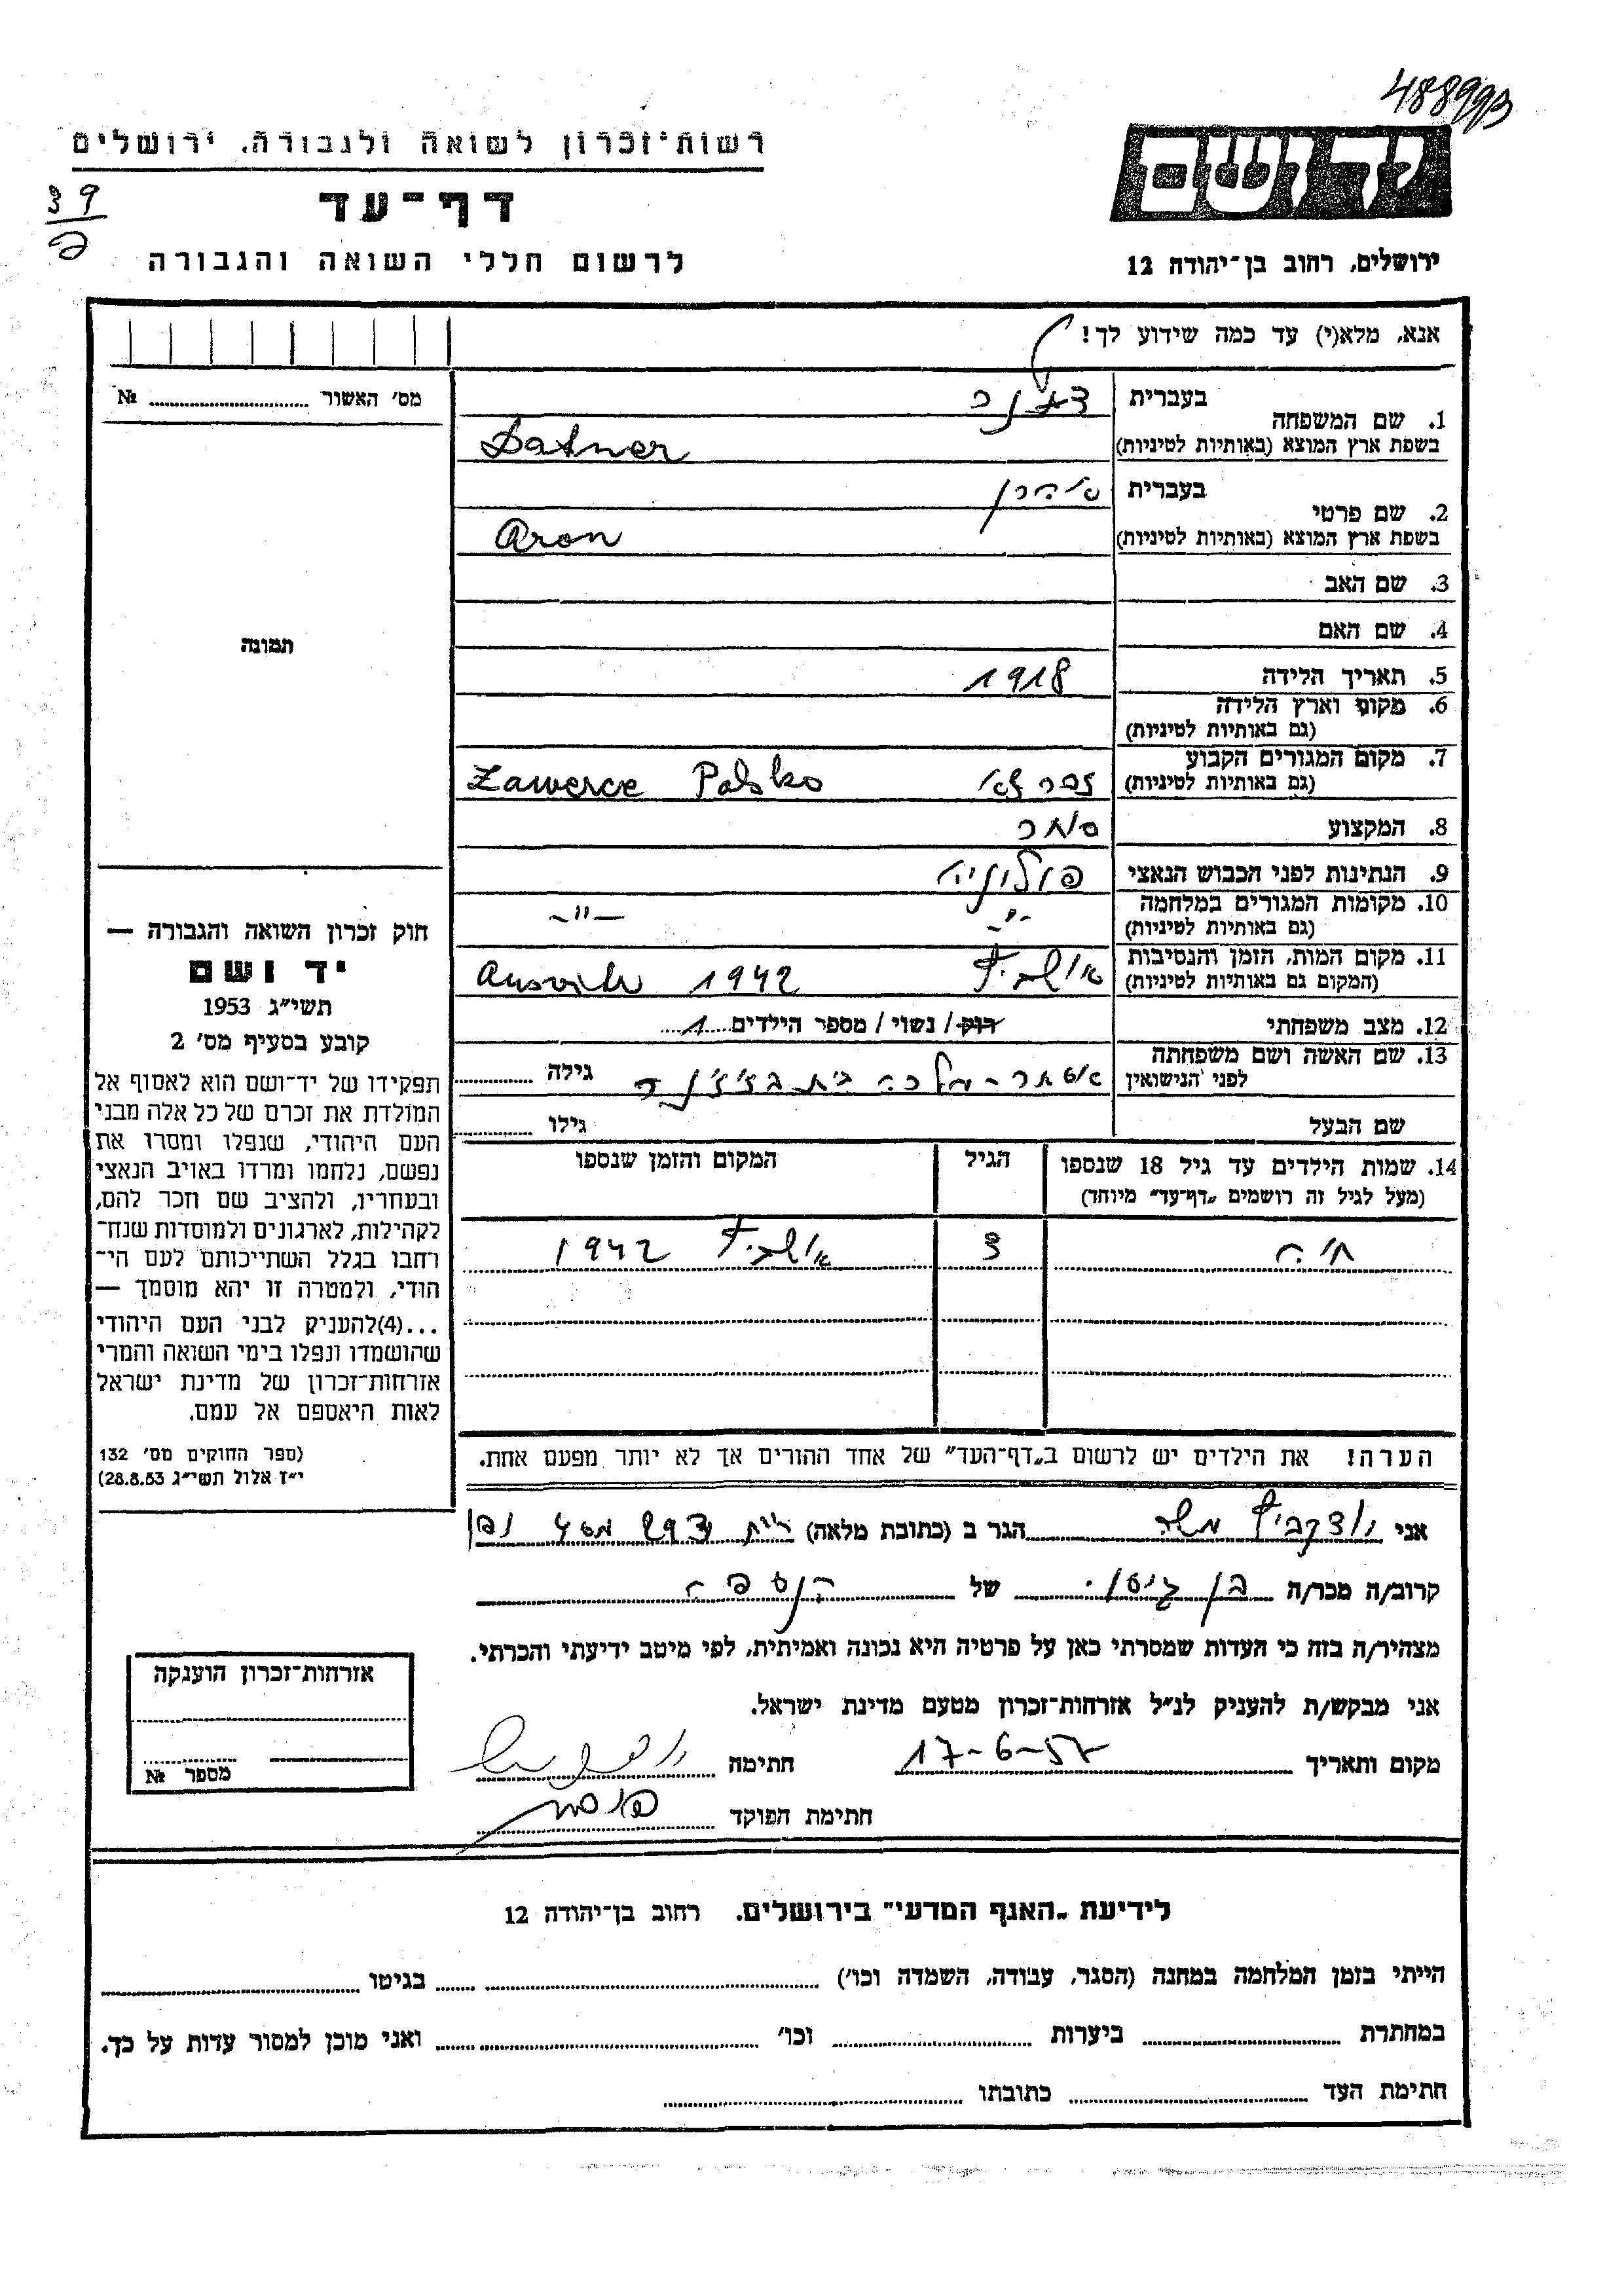 48899
יד ושם
רשות־זכרון לשואה ולגבורה, ירושלים
דף־עד
39
לרשום חללי השואה והגבורה
ירושלים, רחוב בן־יהודה 12
אנא, מלא(י) עד כמה שידוע לך!
מס׳ האשור № 
בעברית
1. שם המשפחה
בשפת ארץ המוצא (באותיות לטיניות) Datner
בעברית אהרן
2. שם פרטי
בשפת ארץ המוצא (באותיות לטיניות) Aron
3. שם האב
4. שם האם
5. תאריך הלידה 1918
6. מקום וארץ הלידה
(גם באותיות לטיניות)
7. מקום המגורים הקבוע
(גם באותיות לטיניות) Zawerce Polsko
8. המקצוע סוחר
9. הנתינות לפני הכבוש הנאצי פולניה
10. מקומות המגורים במלחמה -"- -"-
(גם באותיות לטיניות)
11. מקום המות, הזמן והנסיבות
(המקום גם באותיות לטיניות) אושביץ 1942
12. מצב משפחתי רוק / נשוי / מספר הילדים 1
13. שם האשה ושם משפחתה
לפני הנישואין אסתר-מלכה בית גילה
שם הבעל גילו
14. שמות הילדים עד גיל 18 שנספו הגיל המקום והזמן שנספו
(מעל לגיל זה רושמים „דף־עד״ מיוחד)
חיה 3 אושביץ 1942
הערה! את הילדים יש לרשום ב„דף־העד״ של אחד ההורים אך לא יותר מפעם אחת.
תמונה
חוק זכרון השואה והגבורה —
יד ושם
תשי״ג 1953
קובע בסעיף מס׳ 2
תפקידו של יד־ושם הוא לאסוף אל
המולדת את זכרם של כל אלה מבני
העם היהודי, שנפלו ומסרו את
נפשם, נלחמו ומרדו באויב הנאצי
ובעחריו, ולהציב שם וזכר להם,
לקהילות, לארגונים ולמוסדות שנח־
רחבו בגלל השתייכותם לעם הי־
הודי, ולמטרה זו יהא מוסמך —
...(4)להעניק לבני העם היהודי
שהושמדו ונפלו בימי השואה והמרי
אזרחות־זכרון של מדינת ישראל
לאות היאספם אל עמם.
(ספר החוקים מס׳ 132
י״ז אלול תשי״ג 28.8.53)
אני משה הגר ב (כתובת מלאה)
קרוב/ה מכר/ה בן גיסו של הנספה
מצהיר/ה בזה כי העדות שמסרתי כאן על פרטיה היא נכונה ואמיתית, לפי מיטב ידיעתי והכרתי.
אני מבקש/ת להעניק לנ״ל אזרחות־זכרון מטעם מדינת ישראל.
מקום ותאריך 17-6-57 חתימה
חתימת הפוקד
אזרחות־זכרון הוענקה
מספר №
לידיעת „האגף המדעי״ בירושלים. רחוב בן־יהודה 12
הייתי בזמן המלחמה במחנה (הסגר, עבודה, השמדה וכו׳) בגיטו
במחתרת ביערות וכו׳ ואני מוכן למסור עדות על כך.
חתימת העד כתובתו